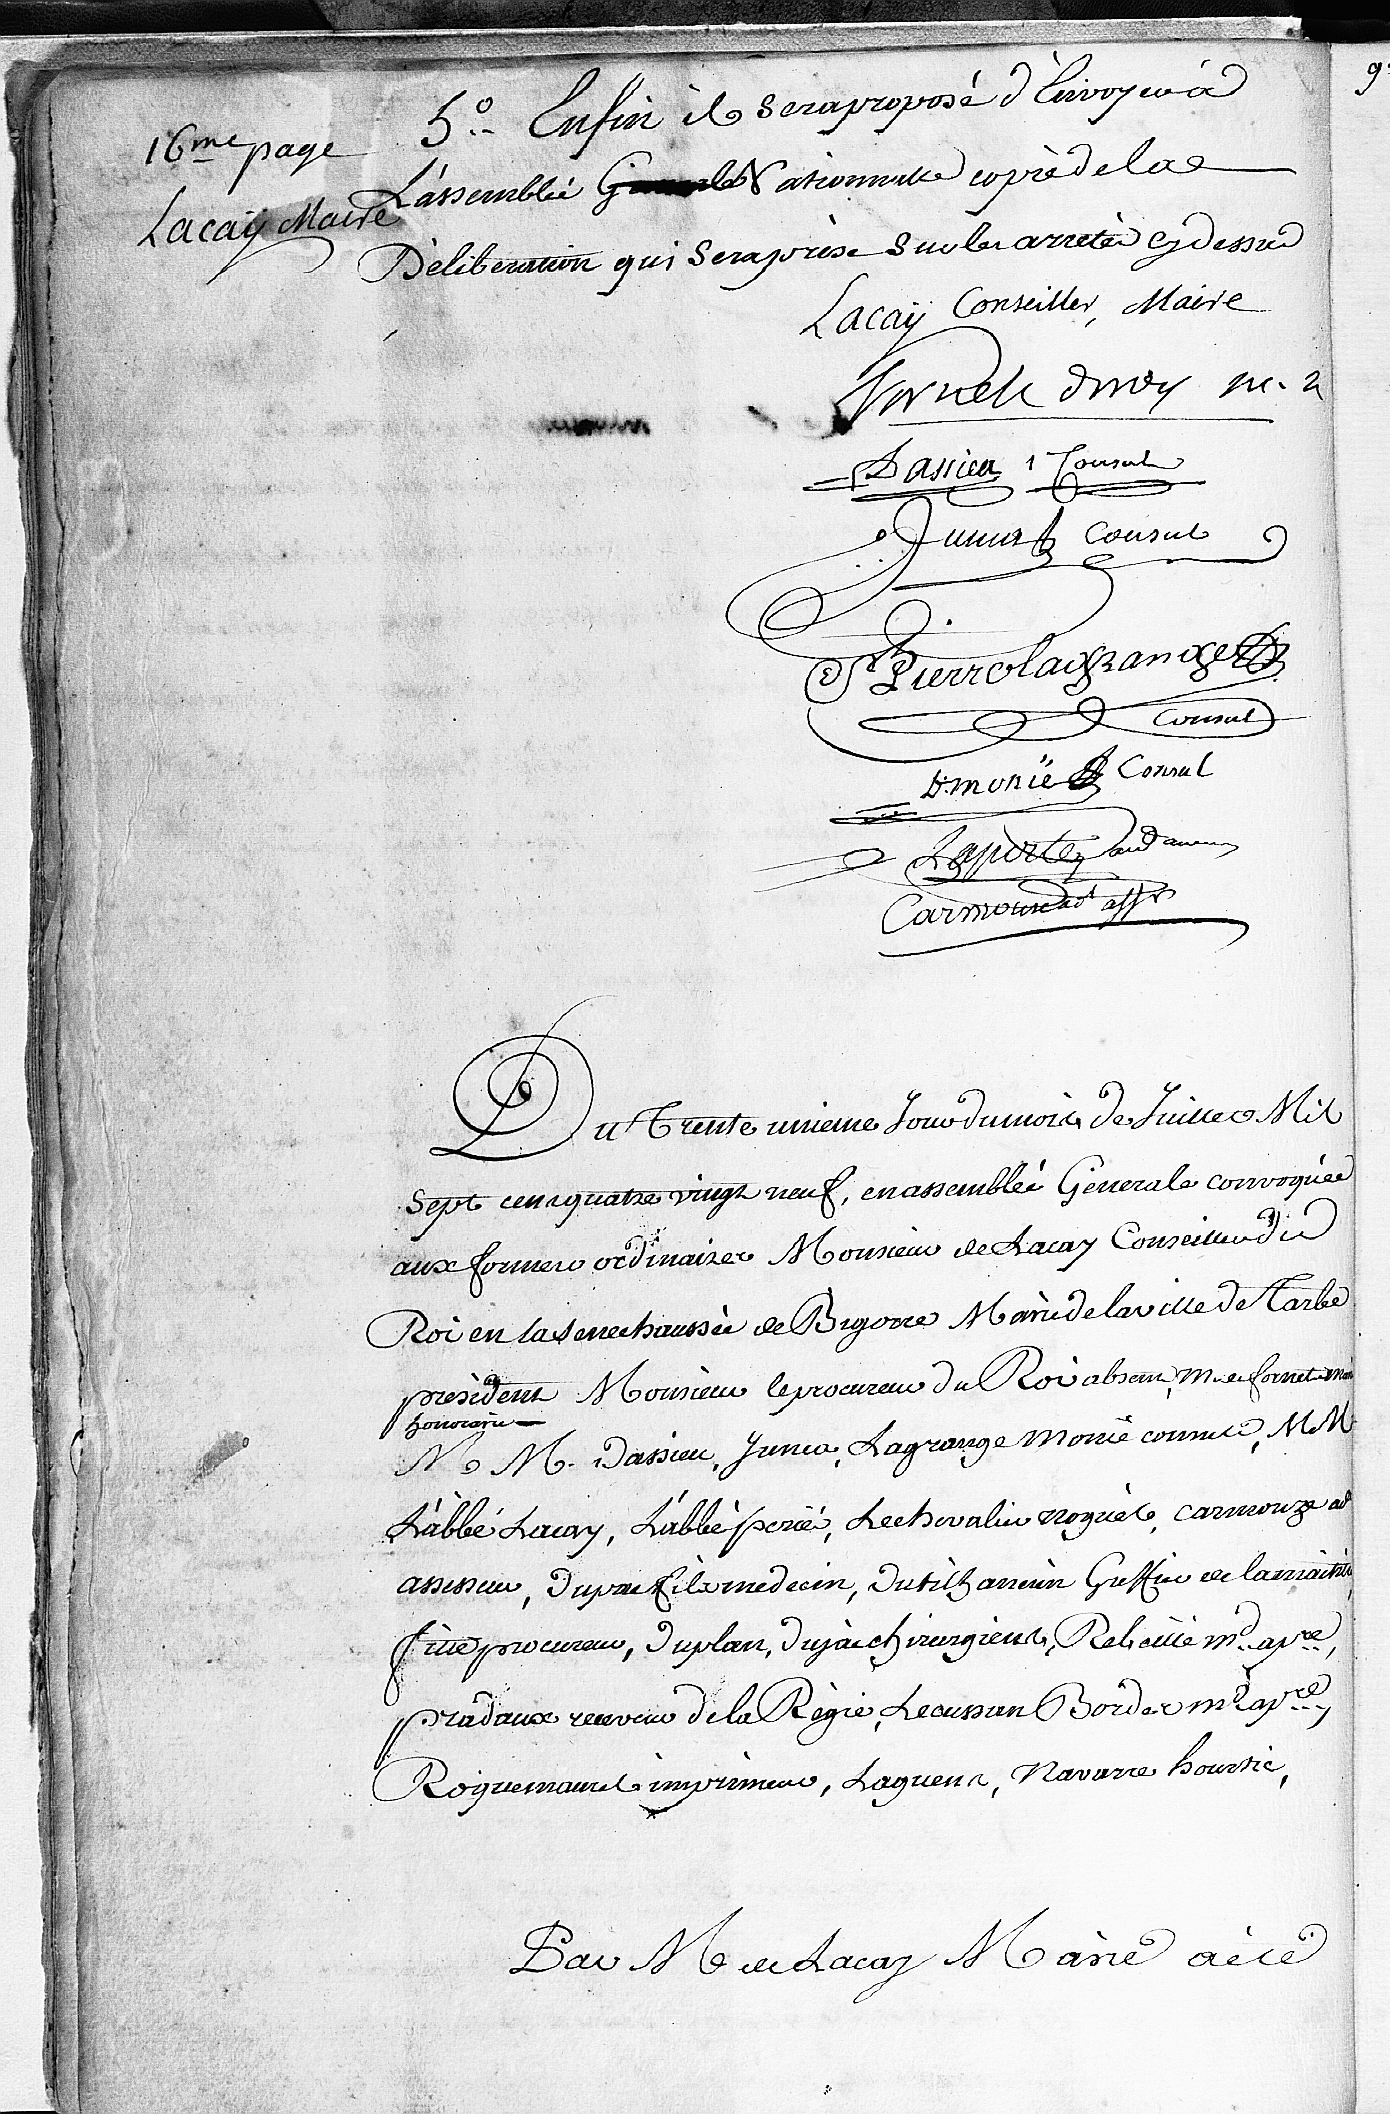 16me page
Lacaÿ Maire
5.° Enfin il sera proposé d'Envoyer a
L'assemblée Nationnalle copie de la
Déliberation qui sera prise sur les arretés cy dessus
Lacaÿ Conseiller, Maire
Dassieu 1 Consul
Junca Consul
Pierre lagrange
Consul
D. monié Consul
Laporte
Carmouze ad assr
Du Trente unieme Jour du mois de Juillet Mil
sept cens quatre vingt neuf, en assemblée Generale convoquée
aux formes ordinaires Monsieur de Lacay Conseiller du
Roi en la senechaussée de Bigorre Maire de la ville de Tarbe
président Monsieur le procureur du Roi absent, M. de fornets maire
honoraire
M M. Dassieu, Junca, Lagrange Monié consuls, M M
L'abbé Lacay, L'abbé perié, Le chevalier noguès, carmouze ad
assesseur, dupra fils medecin, dutilh ancien Greffier de la maitrise,
fitte procureur, duplan, dujac chirurgiens, Relieillé md. apre,
pradaux receveur de la Régie, Lecussan Bordes md apre,
Roquemaurel imprimeur, Laguens, Navarre hourtic,
Par M de Lacay Maire a été